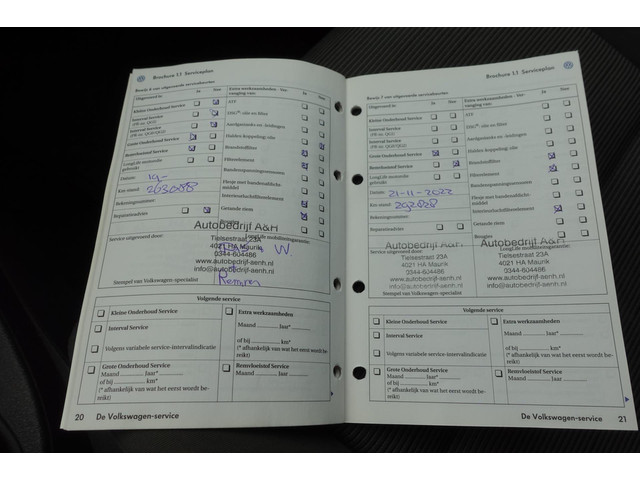 Brochure 1.1 Serviceplan
Bewijs 6 van uitgevoerde servicebeurten
Uitgevoerd in:
Ja Nee
Extra werkzaamheden - Ver-
vanging van:
Ja Nee
Kleine Onderhoud Service
Interval Service
(PR-nr. QG0)
Interval Service
(PR-nr. QG1/QG2)
Grote Onderhoud Service
Remvloeistof Service
LongLife motorolie
gebruikt
Datum:
Km-stand: 263088
Rekeningnummer:
Reparatieadvies
ATF
DSG®-olie en filter
Aardgastanks en -leidingen
Haldex-koppeling: olie
Brandstoffilter
Filterelement
Bandenspanningssensoren
Flesje met bandendicht-
middel
Interieur/luchtfilterelement
Getande riem
Bougies
Service uitgevoerd door:
LongLife mobiliteitsgarantie:
Autobedrijf A&H
Tielsestraat 23A
4021 HA Maurik
0344-604486
www.autobedrijf-aenh.nl
info@autobedrijf-aenh.nl
Remmen
Stempel van Volkswagen-specialist
Volgende service
Kleine Onderhoud Service
Interval Service
Volgens variabele service-intervalindicatie
Grote Onderhoud Service
Maand .......... Jaar*..........
of bij .......... km*
(* afhankelijk van wat het eerst wordt be-
reikt)
Extra werkzaamheden
Maand .......... Jaar*..........
of bij .......... km*
(* afhankelijk van wat het eerst wordt be-
reikt)
Remvloeistof Service
Maand .......... Jaar..........
20 De Volkswagen-service
Brochure 1.1 Serviceplan
Bewijs 7 van uitgevoerde servicebeurten
Uitgevoerd in:
Ja Nee
Extra werkzaamheden - Ver-
vanging van:
Ja Nee
Kleine Onderhoud Service
Interval Service
(PR-nr. QG0)
Interval Service
(PR-nr. QG1/QG2)
Grote Onderhoud Service
Remvloeistof Service
LongLife motorolie
gebruikt
Datum: 21-11-2022
Km-stand: 292828
Rekeningnummer:
Reparatieadvies
ATF
DSG®-olie en filter
Aardgastanks en -leidingen
Haldex-koppeling: olie
Brandstoffilter
Filterelement
Bandenspanningssensoren
Flesje met bandendicht-
middel
Interieur/luchtfilterelement
Getande riem
Bougies
Autobedrijf A&H
Tielsestraat 23A
4021 HA Maurik
0344-604486
www.autobedrijf-aenh.nl
info@autobedrijf-aenh.nl
Autobedrijf A&H
Tielsestraat 23A
4021 HA Maurik
0344-604486
www.autobedrijf-aenh.nl
info@autobedrijf-aenh.nl
Stempel van Volkswagen-specialist
Volgende service
Kleine Onderhoud Service
Interval Service
Volgens variabele service-intervalindicatie
Grote Onderhoud Service
Maand .......... Jaar*..........
of bij .......... km*
(* afhankelijk van wat het eerst wordt be-
reikt)
Extra werkzaamheden
Maand .......... Jaar*..........
of bij .......... km*
(* afhankelijk van wat het eerst wordt be-
reikt)
Remvloeistof Service
Maand .......... Jaar..........
De Volkswagen-service 21